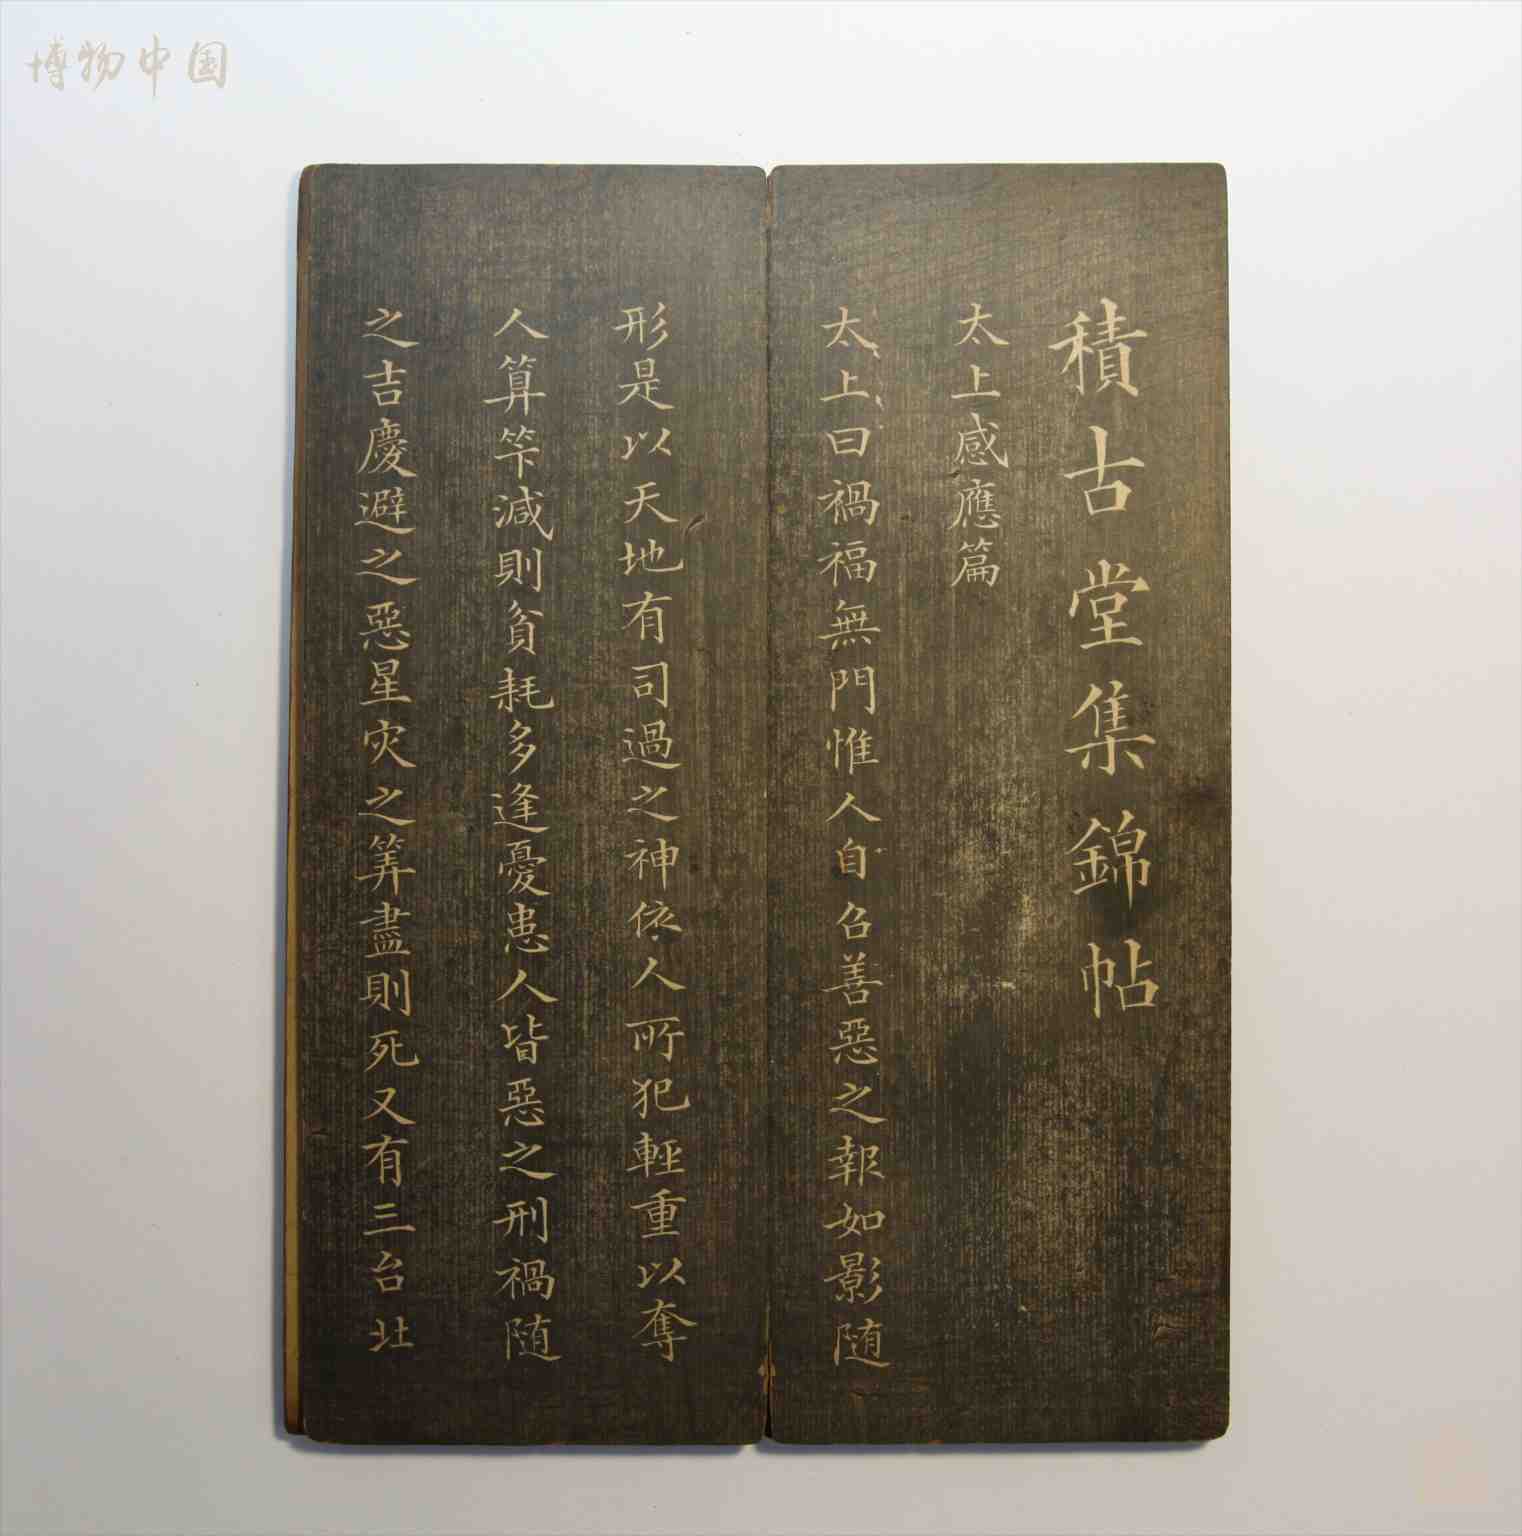 博物中国
積古堂集錦帖
太上感應篇
太上曰禍福無門惟人自召善惡之報如影随
形是以天地有司過之神依人所犯輕重以奪
人算筭減則貧耗多逢憂患人皆惡之刑禍随
之吉慶避之惡星灾之筭盡則死又有三台北